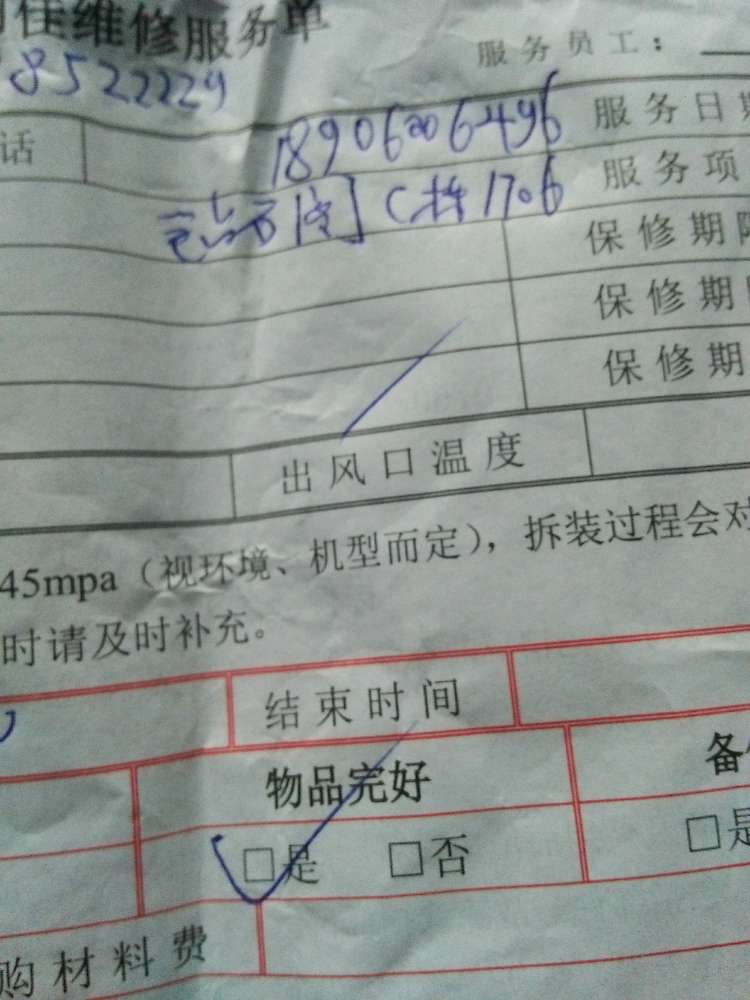 佳维修服务单
服务员工：
8522229
话
18906206496
服务日期
C栋1706
服务项
保修期限
保修期限
保修期
出风口温度
45mpa（视环境、机型而定），拆装过程会对
时请及时补充。
结束时间
物品完好
备
□是 □否
□是
购材料费